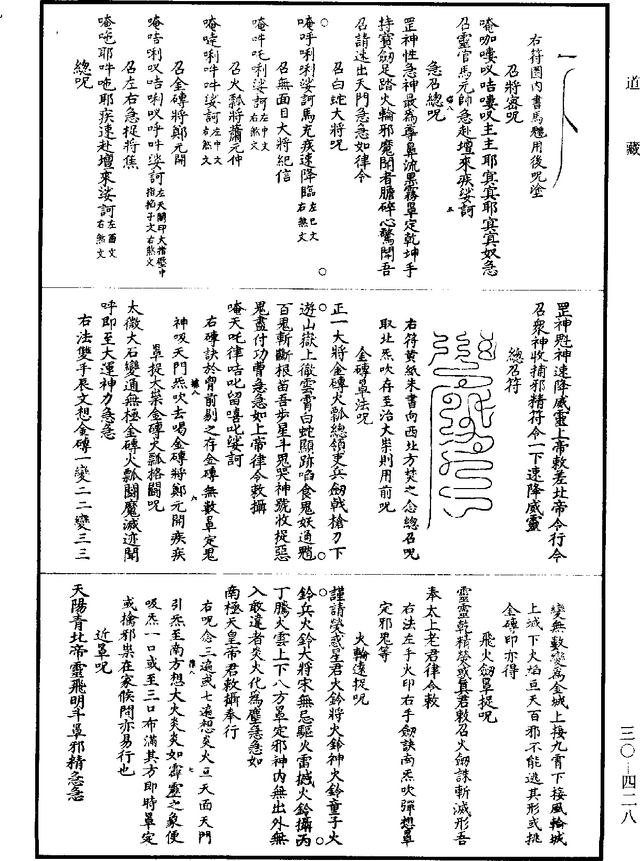 道藏
右符圈內書馬魁用後呪塗
召將密呪
唵咖嘍㕚咭嘍㕚主主耶寅寅耶寅寅奴急
召靈官馬元帥急赴壇來疾娑訶
急召總呪
罡神性急神最為尊鼻流黑霧罩定乾坤手
持寶劒足踏火輪邪魔聞者膽碎心驚聞吾
召請速出天門急急如律令
召白蛇大將呪
唵呼唎唎娑訶馬充疾速降臨左巳文右煞文
召無面目大將紀信
唵吽吒唎娑訶左中文右煞文
召火瓢將蕭元仲
唵㗧唎吽吽娑訶左中文右煞文
召金磚將鄭元開
唵咭唎㕚咭唎㕚呼吽娑訶
召左右急捉將焦
唵吔耶吽吔耶疾速赴壇來娑訶左酉文右煞文
總呪
罡神魁神速降威靈上帝敕差北帝令行今
召衆神收捕邪精符令一下速降威靈
總召符
右符黃紙朱書向西北方焚之念總召呪
取北炁吹存至治大祟則用前呪
金磚罩法呪
正一大將金磚火瓢總領吏兵劒戟槍刀下
遊山嶽上徹雲霄白蛇顯跡啗食鬼妖通魈
百鬼斬斷根苗吾步星斗鬼哭神號收捉惡
鬼盡付功曹急急如上帝律令敕攝
唵天吒律咭叱留嘻叱娑訶
右磚訣於胷前剔之存金磚無數罩定鬼
神吸天門炁吹去喝金磚將鄭元開疾疾
罩捉大祟金磚火瓢格鬭呪
太微大石變通無極金磚火瓢鬭魔滅迹聞
呼即至大運神力急急
右法雙手辰文想金磚一變二二變三三
變無數變爲金城上接九霄下接風輪城
上城下火焰亘天百邪不能逃其形或挑
金磚印亦得
飛火劒罩捉呪
靈靈乾精熒或真君敕召火劒誅斬滅形吾
奉太上老君律令敕
右法左手火印右手劒訣南炁吹彈想罩
定邪鬼等
火輪遠捉呪
謹請熒惑星君火鈴將火鈴神火鈴童子火
鈴兵火鈴大將宋無忌驅火雷撼火鈴攝丙
丁騰火雲上下八方罩定邪神內無出外無
入敢違者炎火化為塵急急如
南極天皇帝君敕攝奉行
右呪念三遍或七遍想炎火亘天面天門
引炁至南方想大火炎炎如霹靂之象便
吸炁一口或至三口布滿其方即時罩定
或擒邪祟在家候問亦易行也
近罩呪
天陽青北帝靈飛明斗罩邪精急急
三〇—四二八